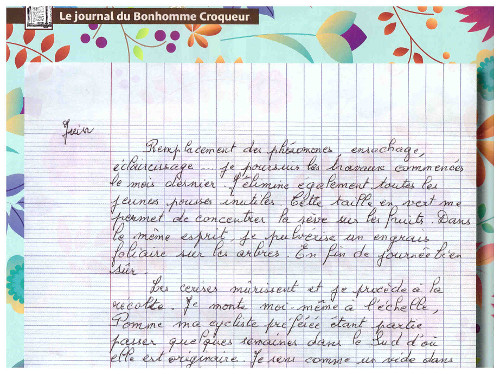 Le journal du Bonhomme Croqueur
Juin
Remplacement des phéromones ensachage,
éclaircissage ... je poursuis les travaux commencés
le mois dernier. J'élimine également toutes les
jeunes pousses inutiles. Cette taille en vert me
permet de concentrer la sève sur les fruits. Dans
le même esprit, je pulvérise un engrais
foliaire sur les arbres. En fin de journée bien
sûr.
Les cerises mûrissent et je procède à la
récolte. Je monte moi-même à l'échelle,
Pomme ma cycliste préférée étant partie
passer quelques semaines dans le Sud d'où
elle est originaire. Je sens comme un vide dans